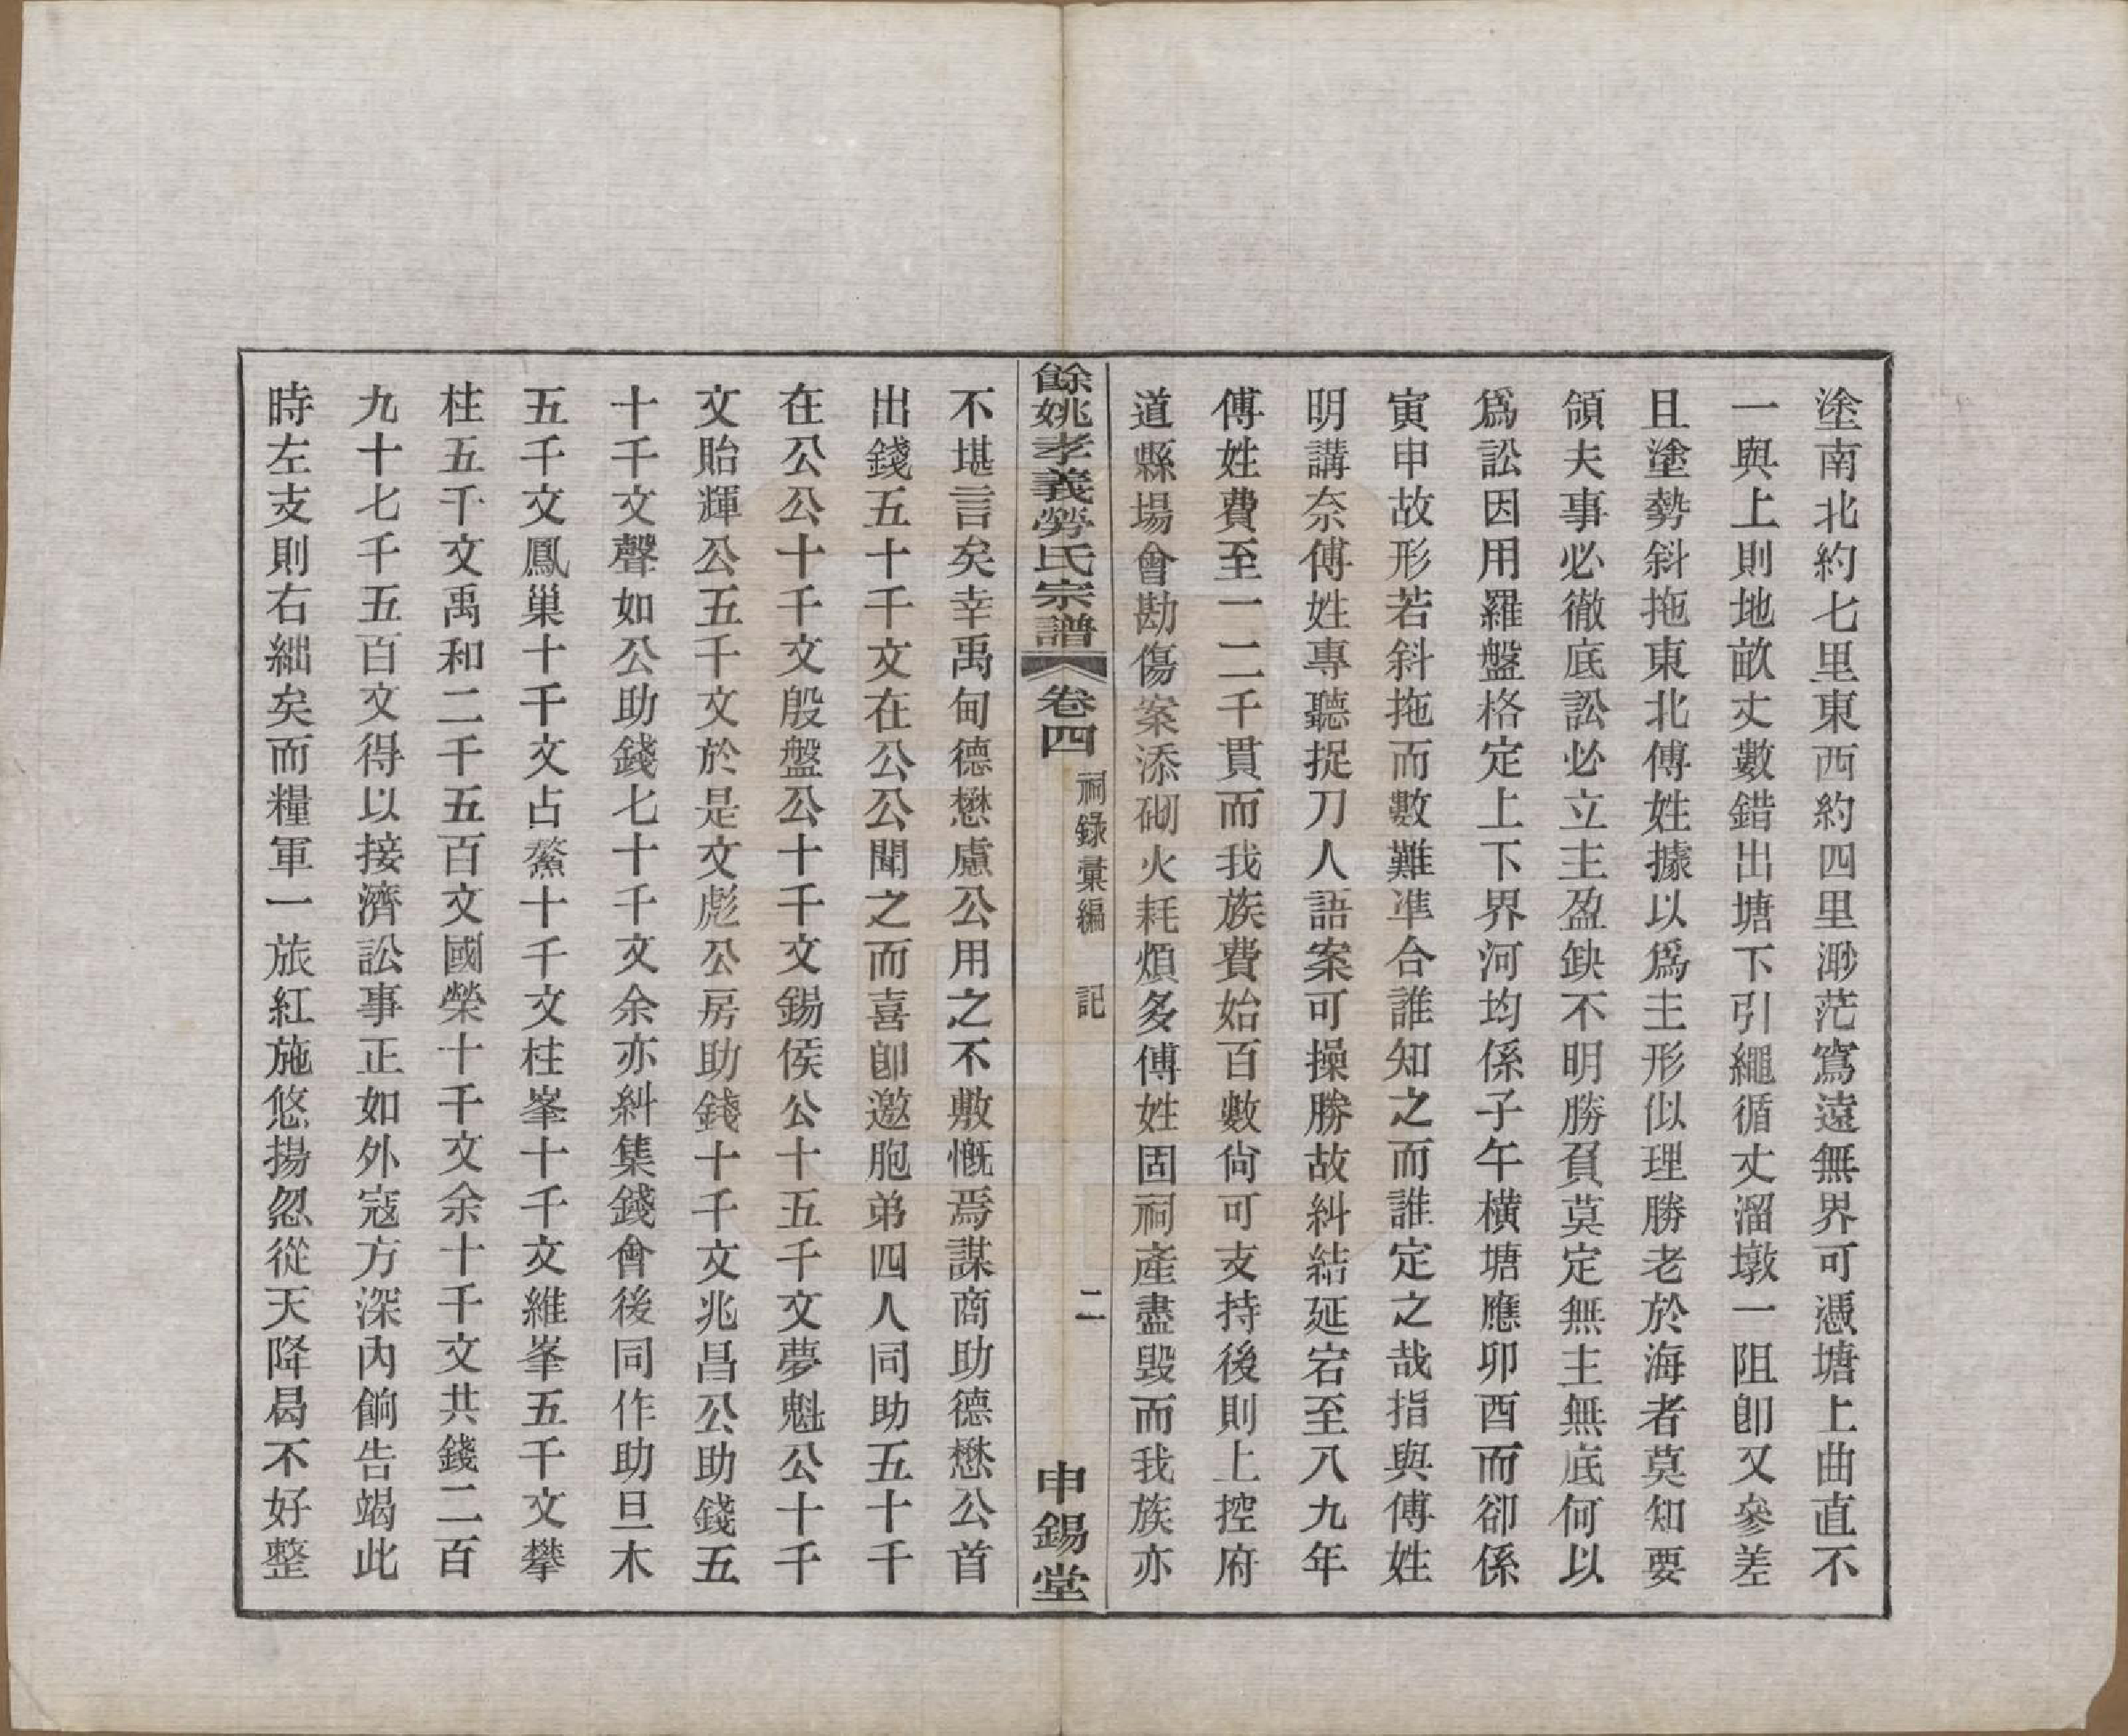 塗南北約七里東西約四里渺茫窵遠無界可憑塘上曲直不
一與上則地畝丈數錯出塘下引繩循丈溜墩一阻卽又參差
且塗勢斜拖東北傅姓據以爲主形似理勝老於海者莫知要
領夫事必徹底訟必立主盈缺不明勝負莫定無主無底何以
爲訟因用羅盤格定上下界河均係子午橫塘應卯酉而卻係
寅申故形若斜拖而數難準合誰知之而誰定之哉指與傅姓
明講奈傅姓專聽捉刀人語案可操勝故糾結延宕至八九年
傅姓費至一二千貫而我族費始百數尙可支持後則上控府
道縣場會勘傷案添砌火耗煩多傅姓固祠產盡毀而我族亦
餘姚孝義勞氏宗譜 卷四 祠錄彙編 記 二 申錫堂
不堪言矣幸禹甸德懋慮公用之不敷慨焉謀商助德懋公首
出錢五十千文在公公聞之而喜卽邀胞弟四人同助五十千
在公公十千文殷盤公十千文錫侯公十五千文夢魁公十千
文貽輝公五千文於是文彪公房助錢十千文兆昌公助錢五
十千文聲如公助錢七十千文余亦糾集錢會後同作助旦木
五千文鳳巢十千文占鰲十千文桂峯十千文維峯五千文攀
柱五千文禹和二千五百文國榮十千文余十千文共錢二百
九十七千五百文得以接濟訟事正如外寇方深內餉告竭此
時左支則右絀矣而糧軍一旅紅施悠揚忽從天降曷不好整